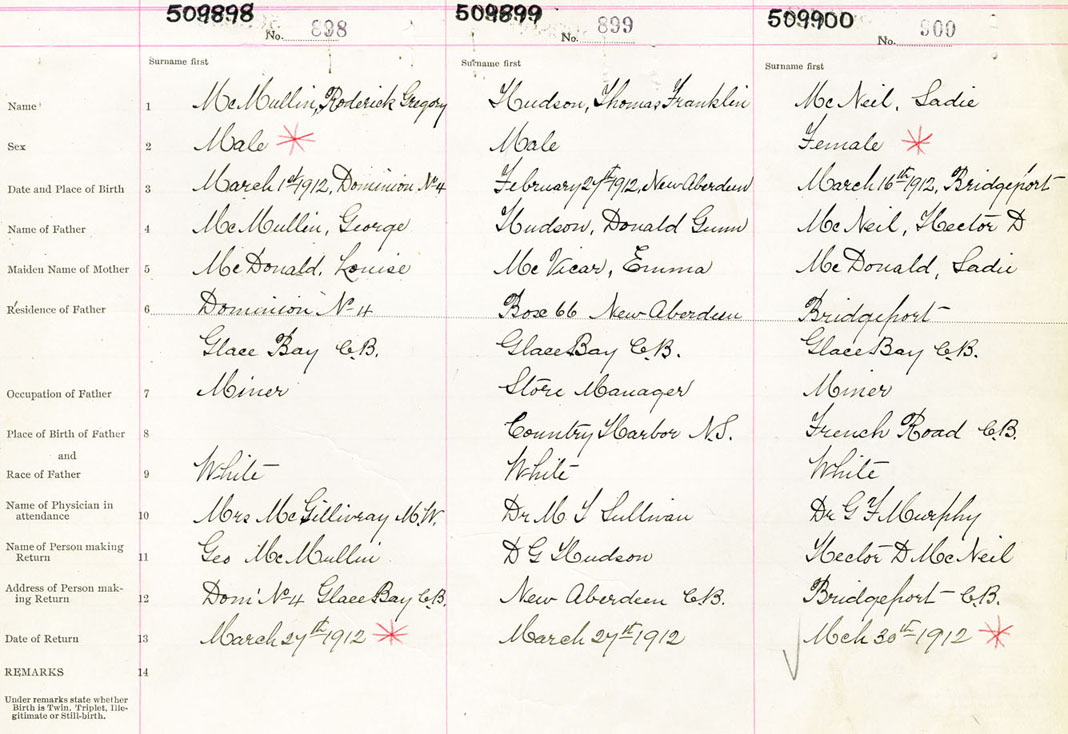 509898 509899 509900
No. 898 No. 899 No. 900
Surname first Surname first Surname first
Name 1 McMullin, Roderick Gregory Hudson, Thomas Franklin McNeil, Sadie
Sex 2 Male Male Female
Date and Place of Birth 3 March 1st 1912, Dominion No 4 February 27th 1912, New Aberdeen March 16th 1912, Bridgeport
Name of Father 4 McMullin, George Hudson, Donald Gunn McNeil, Hector D
Maiden Name of Mother 5 McDonald, Louise McVicar, Emma McDonald, Sadie
Residence of Father 6 Dominion No 4 Box 66 New Aberdeen Bridgeport
Glace Bay C.B. Glace Bay C.B. Glace Bay C.B.
Occupation of Father 7 Miner Store Manager Miner
Place of Birth of Father 8 Country Harbor N.S. French Road C.B.
and
Race of Father 9 White White White
Name of Physician in
attendance 10 Mrs McGillivray M.W. Dr M T Sullivan Dr G F Murphy
Name of Person making
Return 11 Geo McMullin D G Hudson Hector D McNeil
Address of Person mak-
ing Return 12 Dom' No 4 Glace Bay C.B. New Aberdeen C.B. Bridgeport C.B.
Date of Return 13 March 27th 1912 March 27th 1912 Mch 30th 1912
REMARKS 14
Under remarks state whether
Birth is Twin, Triplet, Ille-
gitimate or Still-birth.